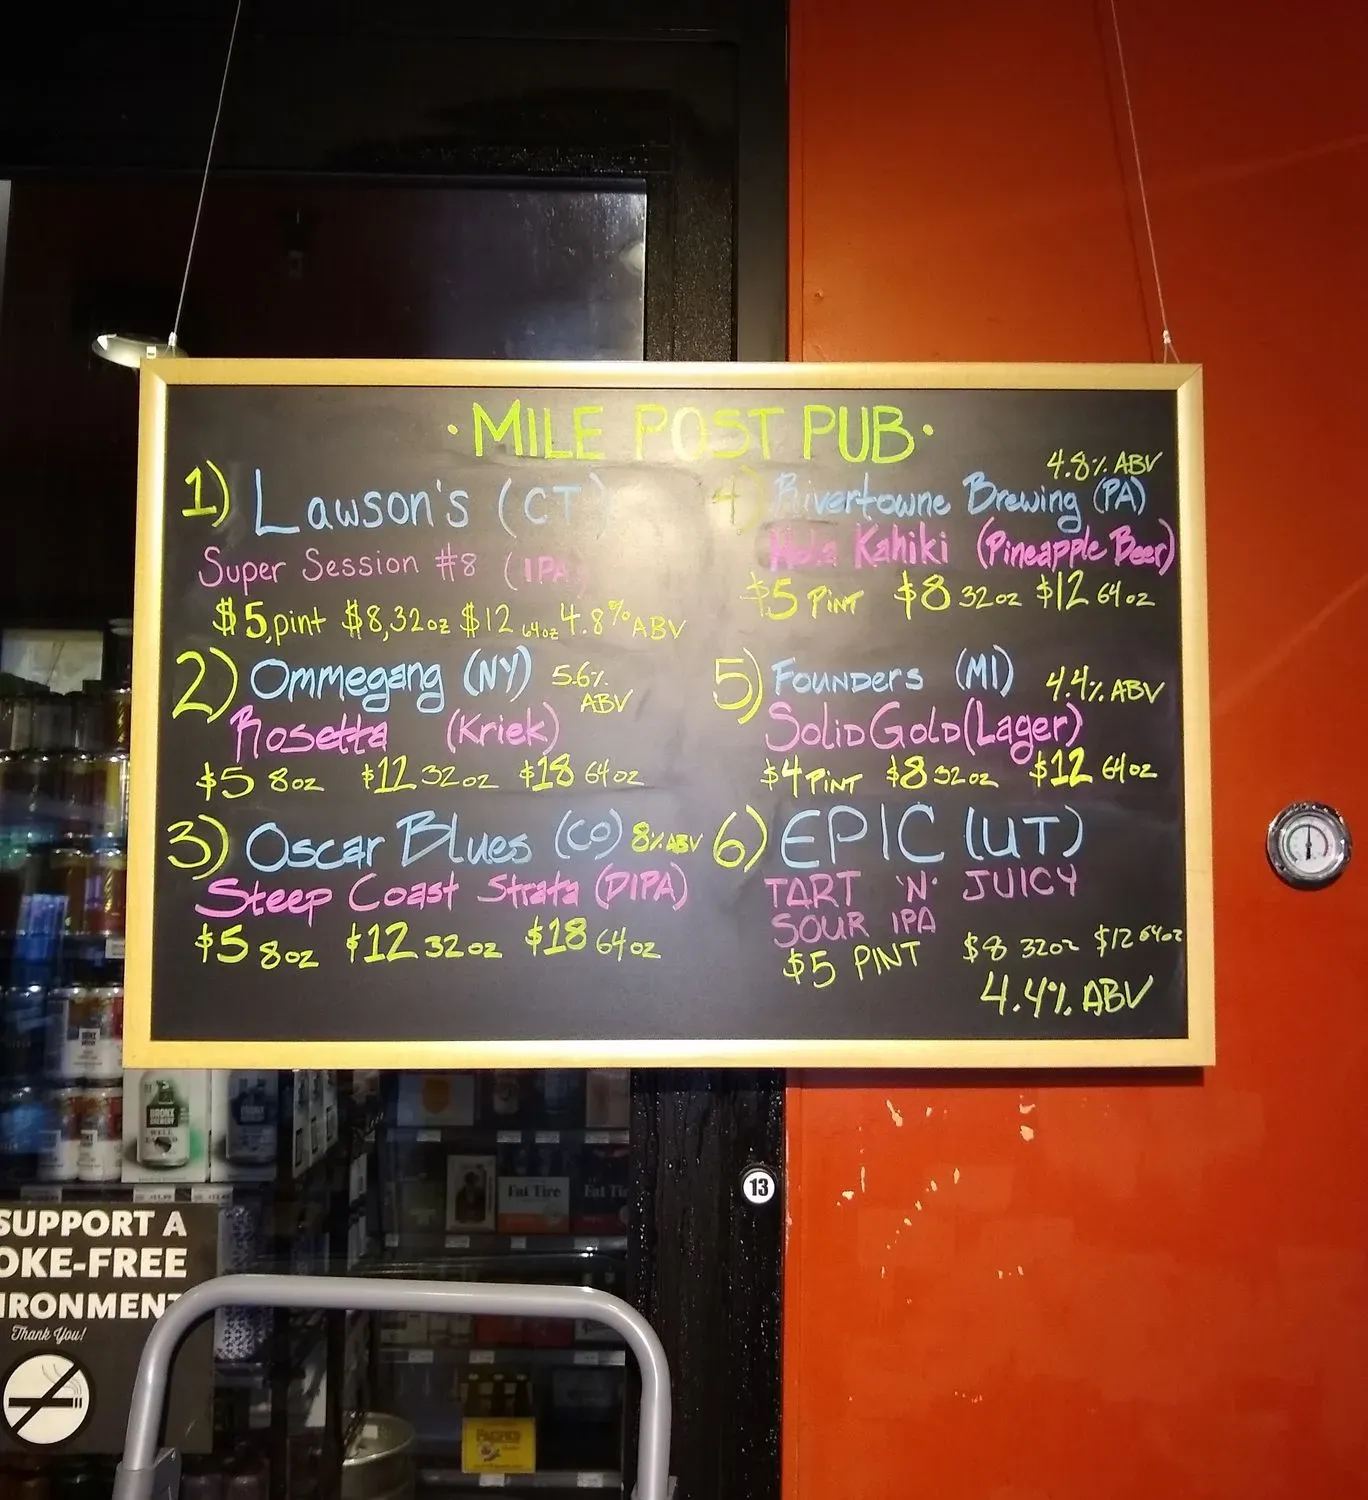 · MILE POST PUB ·
1) Lawson's (CT)
Super Session #8 (IPA)
$5, pint $8, 32oz $12 64oz 4.8% ABV
2) Ommegang (NY) 5.6%
ABV
Rosetta (Kriek)
$5 8oz $12 32oz $18 64oz
3) Oscar Blues (CO) 8% ABV
Steep Coast Strata (DIPA)
$5 8oz $12 32oz $18 64oz
4.8% ABV
4) Rivertowne Brewing (PA)
Hala Kahiki (Pineapple Beer)
$5 PINT $8 32oz $12 64oz
5) FOUNDERS (MI) 4.4% ABV
SOLID GOLD (Lager)
$4 PINT $8 32oz $12 64oz
6) EPIC (UT)
TART 'N' JUICY
SOUR IPA
$5 PINT $8 32oz $12 64oz
4.4% ABV
13
SUPPORT A
OKE-FREE
IRONMENT
Thank You!
BRONX
BREWERY
Fat Tire
Fat Ti
PACIFICO